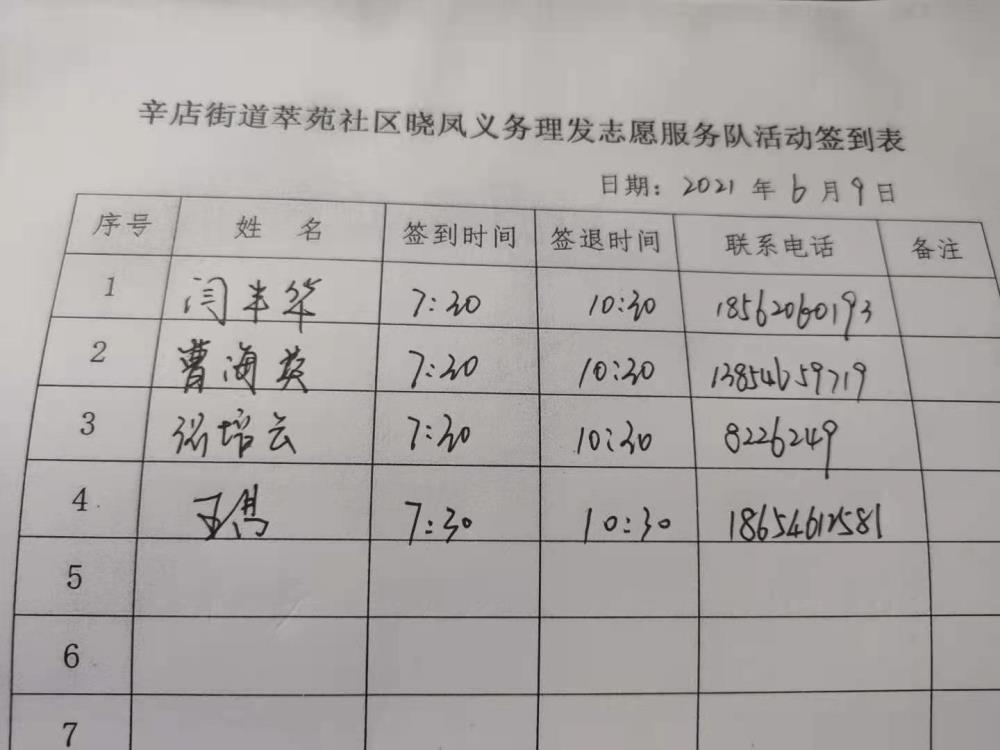 辛店街道萃苑社区晓凤义务理发志愿服务队活动签到表
日期：2021年6月9日
序号 姓名 签到时间 签退时间 联系电话 备注
1 闫丰华 7:30 10:30 18562060193
2 曹海英 7:30 10:30 13854659719
3 培云 7:30 10:30 8226249
4 王 7:30 10:30 18654612581
5
6
7